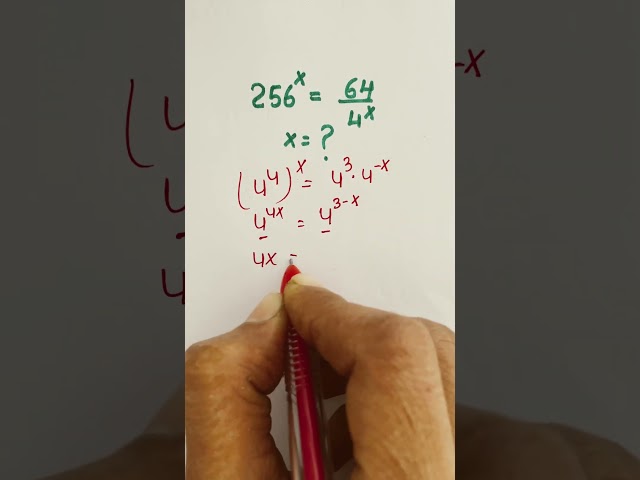 256^x = 64/4^x
x = ?
(4^4)^x = 4^3 · 4^-x
4^4x = 4^3-x
4x =